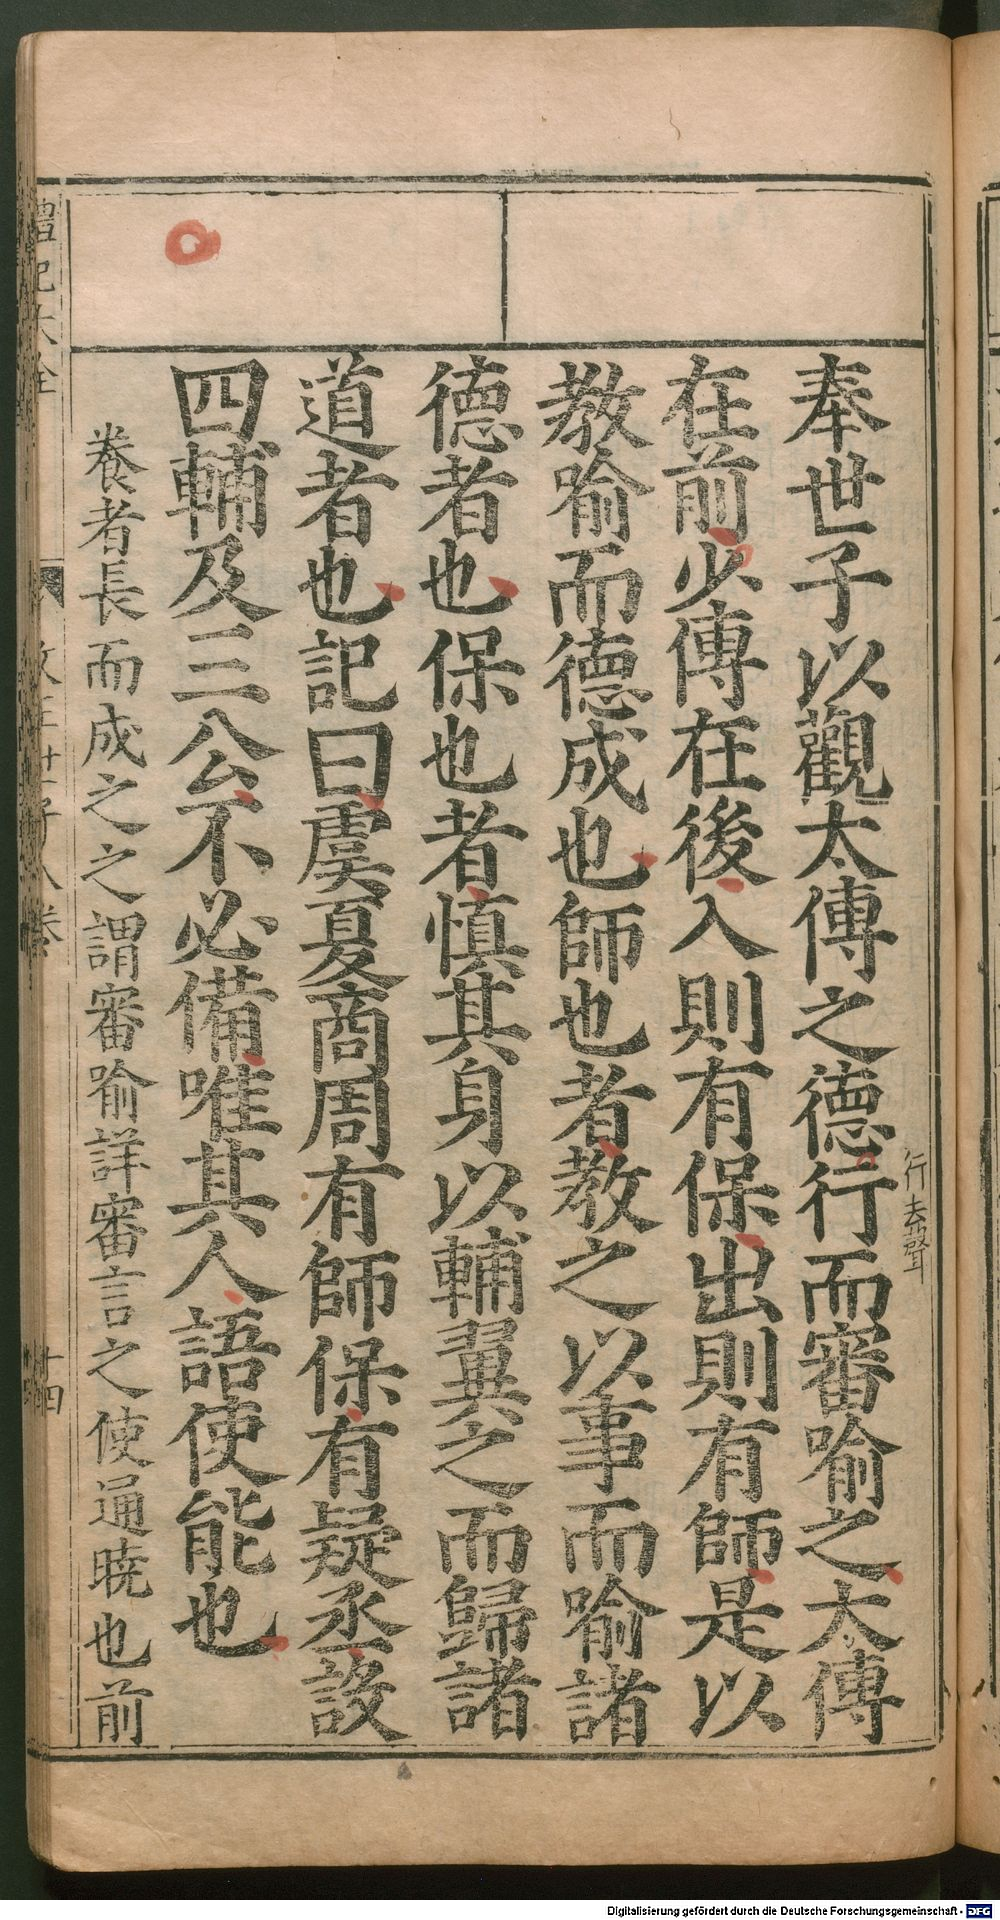 奉世子以觀太傅之德行而審喻之太傅
行去聲
在前少傅在後入則有保出則有師是以
教喻而德成也師也者教之以事而喻諸
德者也保也者慎其身以輔翼之而歸諸
道者也記曰虞夏商周有師保有疑丞設
四輔及三公不必備唯其人語使能也
養者長而成之之謂審喻詳審言之使通曉也前
禮記大全
文王世子八卷
十四
Digitalisierung gefördert durch die Deutsche Forschungsgemeinschaft - DFG